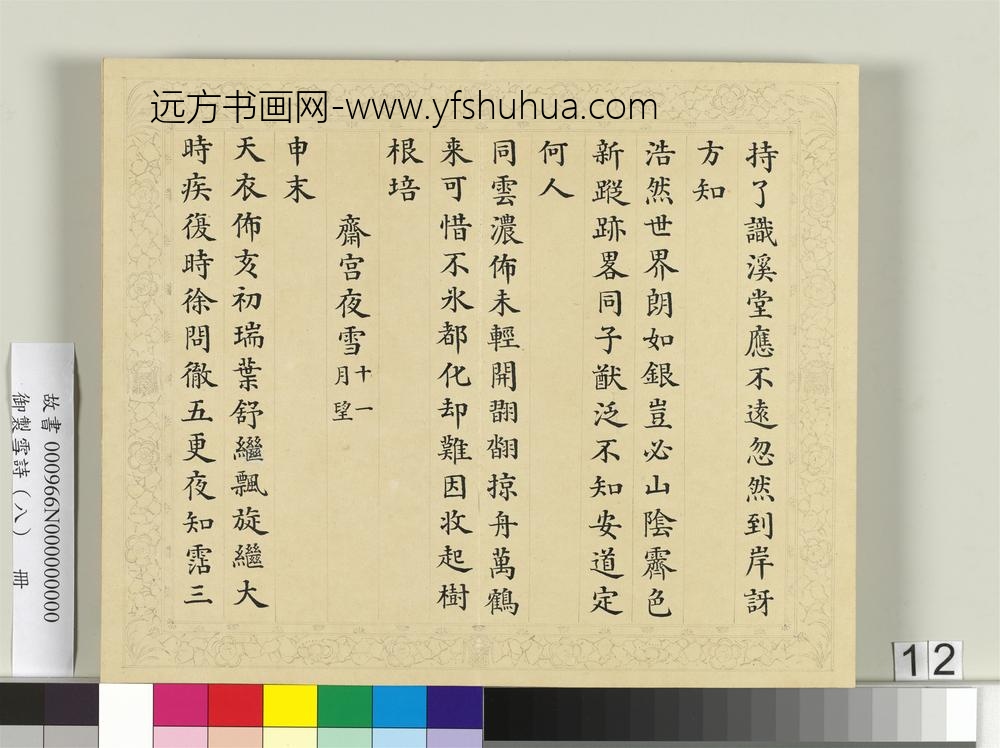 远方书画网-www.yfshuhua.com
持了識溪堂應不遠忽然到岸訝
方知
浩然世界朗如銀豈必山陰霽色
新蹤跡畧同子猷泛不知安道定
何人
同雲濃佈未輕開翾翻掠舟萬鶴
来可惜不氷都化却難因收起樹
根培
齋宫夜雪十一月望
申末
天衣佈亥初瑞葉舒繼飄旋繼大
時疾復時徐問徹五更夜知霑三
故書 000966N000000000
御製雪詩（八） 冊
12